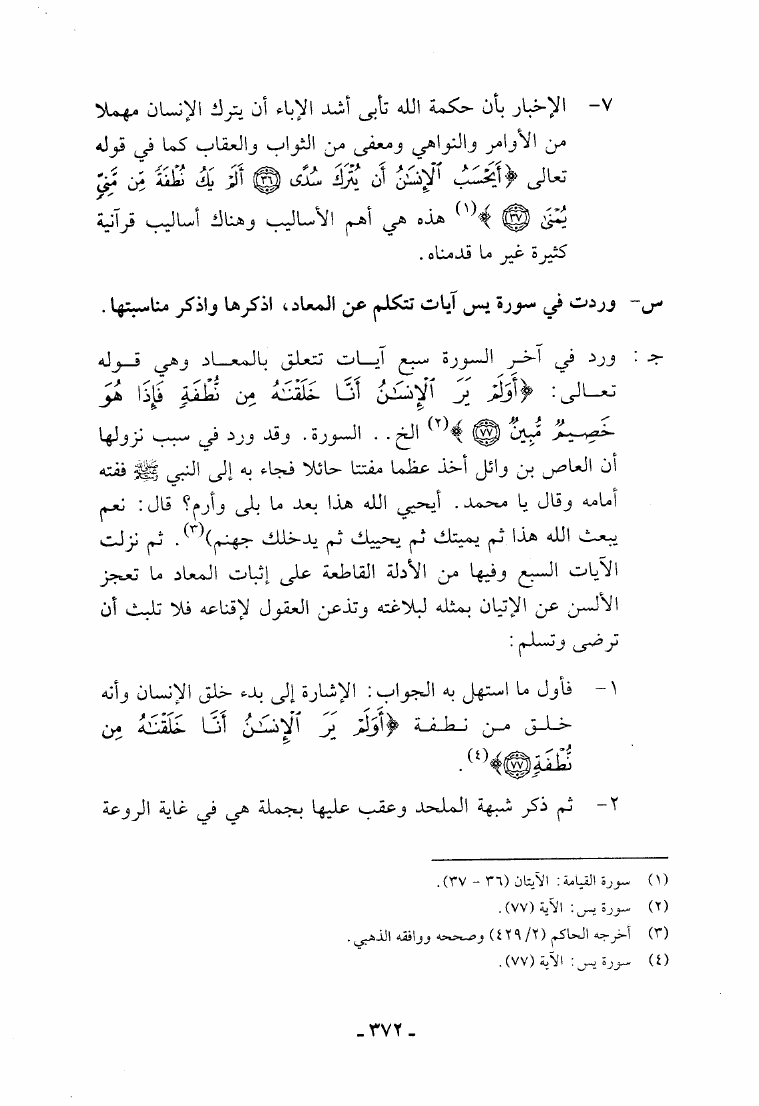 ٧- الإخبار بأن حكمة الله تأبى أشد الإباء أن يترك الإنسان مهملا
من الأوامر والنواهي ومعفى من الثواب والعقاب كما في قوله
تعالى ﴿أَيَحْسَبُ ٱلْإِنسَٰنُ أَن يُتْرَكَ سُدًى ۝٣٦ أَلَمْ يَكُ نُطْفَةً مِّن مَّنِيٍّ
يُمْنَىٰ ۝٣٧ ﴾(١) هذه هي أهم الأساليب وهناك أساليب قرآنية
كثيرة غير ما قدمناه.
س- وردت في سورة يس آيات تتكلم عن المعاد، اذكرها واذكر مناسبتها.
جـ : ورد في آخر السورة سبع آيـات تتعلق بالمعـاد وهي قـوله
تعـالى: ﴿أَوَلَمْ يَرَ ٱلْإِنسَٰنُ أَنَّا خَلَقْنَٰهُ مِن نُّطْفَةٍ فَإِذَا هُوَ
خَصِيمٌ مُّبِينٌ ۝٧٧ ﴾(٢) الخ.. السورة. وقد ورد في سبب نزولها
أن العاص بن وائل أخذ عظما مفتتا حائلا فجاء به إلى النبي ﷺ ففته
أمامه وقال يا محمد. أيحيي الله هذا بعد ما بلى وأرم؟ قال: نعم
يبعث الله هذا ثم يميتك ثم يحييك ثم يدخلك جهنم)(٣). ثم نزلت
الآيات السبع وفيها من الأدلة القاطعة على إثبات المعاد ما تعجز
الألسن عن الإتيان بمثله لبلاغته وتذعن العقول لإقناعه فلا تلبث أن
ترضى وتسلم:
١- فأول ما استهل به الجواب: الإشارة إلى بدء خلق الإنسان وأنه
خـلـق مـن نـطـفـة ﴿أَوَلَمْ يَرَ ٱلْإِنسَٰنُ أَنَّا خَلَقْنَٰهُ مِن
نُّطْفَةٍ ۝٧٧﴾(٤).
٢- ثم ذكر شبهة الملحد وعقب عليها بجملة هي في غاية الروعة
(١) سورة القيامة: الآيتان (٣٦ - ٣٧).
(٢) سورة يس: الآية (٧٧).
(٣) أخرجه الحاكم (٤٢٩/٢) وصححه ووافقه الذهبي.
(٤) سورة يس: الآية (٧٧).
- ٣٧٢ -